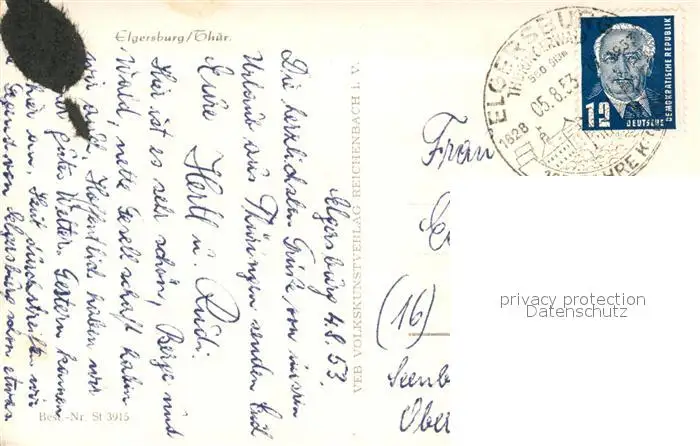 Elgersburg/Thür.
Elgersburg 4.8.53.
Die herzlichsten Grüße von unsern
Urlaub aus Thüringen senden Euch
Eure Hertl u. Rudi.
Hier ist es sehr schön, Berge und
Wald, nette Gesellschaft haben
wir auch. Hoffentlich haben wir
gutes Wetter. Gestern kamen
hier an, Heut durchstreiften wir
Gegend von Elgersburg schon etwas
Best.-Nr. St 3915
VEB VOLKSKUNSTVERLAG REICHENBACH I. V.
ELGERSBURG
THÜRINGERWALD
05.8.53
1828
12
DEUTSCHE
DEMOKRATISCHE REPUBLIK
Frau
(16)
Ober
privacy protection
Datenschutz